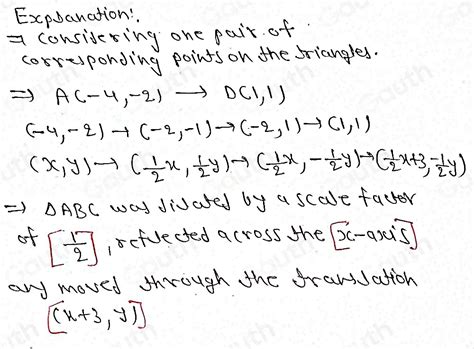 Explanation:
⇒ considering one pair of
corresponding points on the triangles.
⇒ A(-4,-2) → D(1,1)
(-4,-2) → (-2,-1) → (-2,1) → (1,1)
(x,y) → (1/2x, 1/2y) → (1/2x, -1/2y) → (1/2x+3, -1/2y)
⇒ ΔABC was dilated by a scale factor
of [1/2], reflected across the [x-axis]
and moved through the translation
[(x+3, y)]